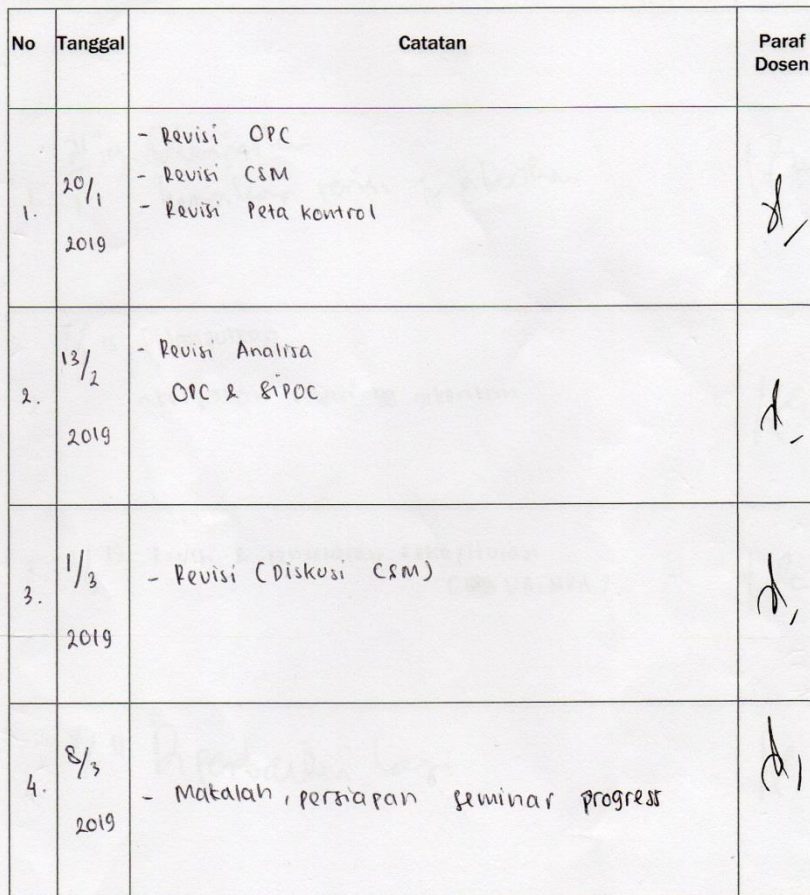 No Tanggal Catatan Paraf Dosen
1. 20/1 2019
- Revisi OPC
- Revisi CSM
- Revisi Peta kontrol
2. 13/2 2019
- Revisi Analisa
OPC & SIPOC
3. 1/3 2019
- Revisi (Diskusi CSM)
4. 8/3 2019
- Makalah, persiapan seminar progress